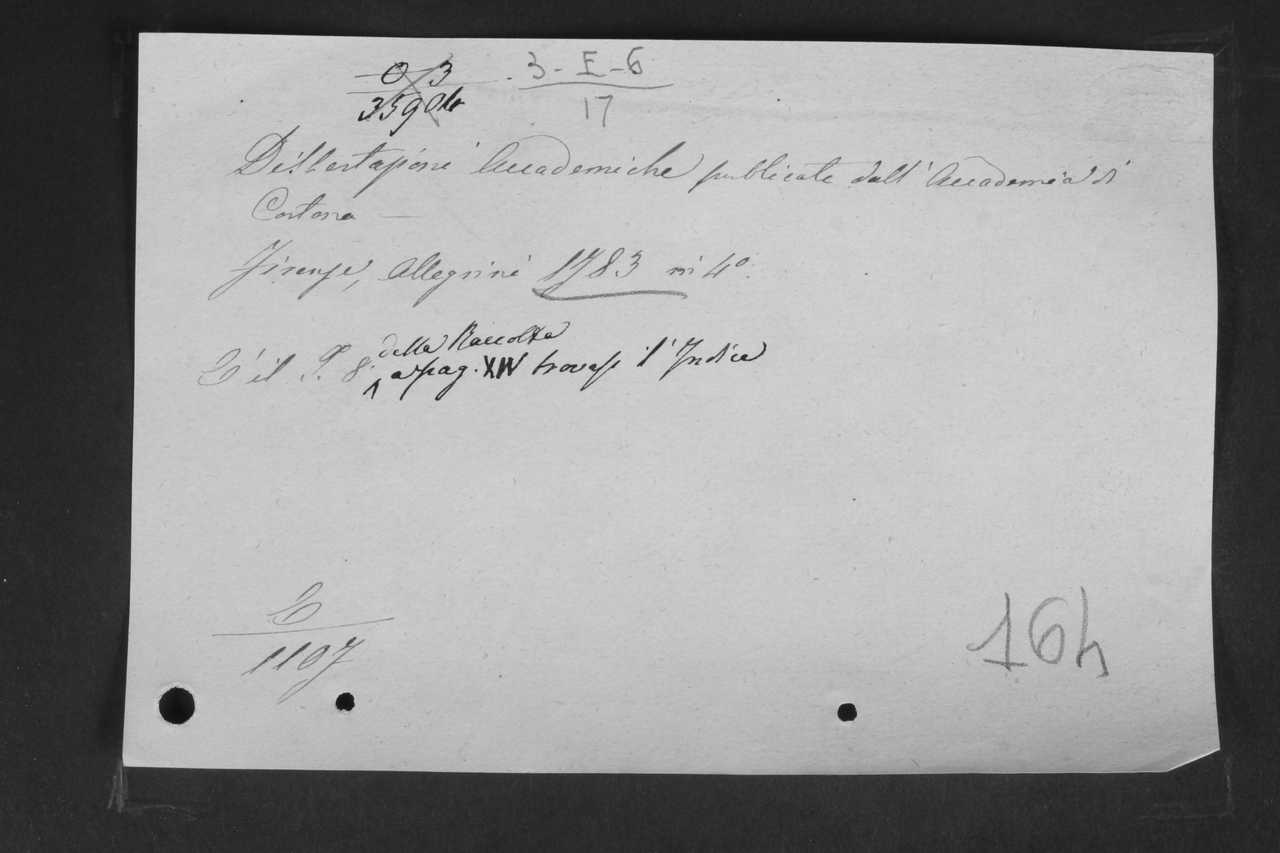 O 3
3 - E - 6
17
Dissertazioni Accademiche publicate dall' Accademia di
Cortona —
Firenze, Allegrini 1783 in 4°.
È il T. 8. della Raccolta
a pag. XIV trovasi l'Indice
C
1107
164